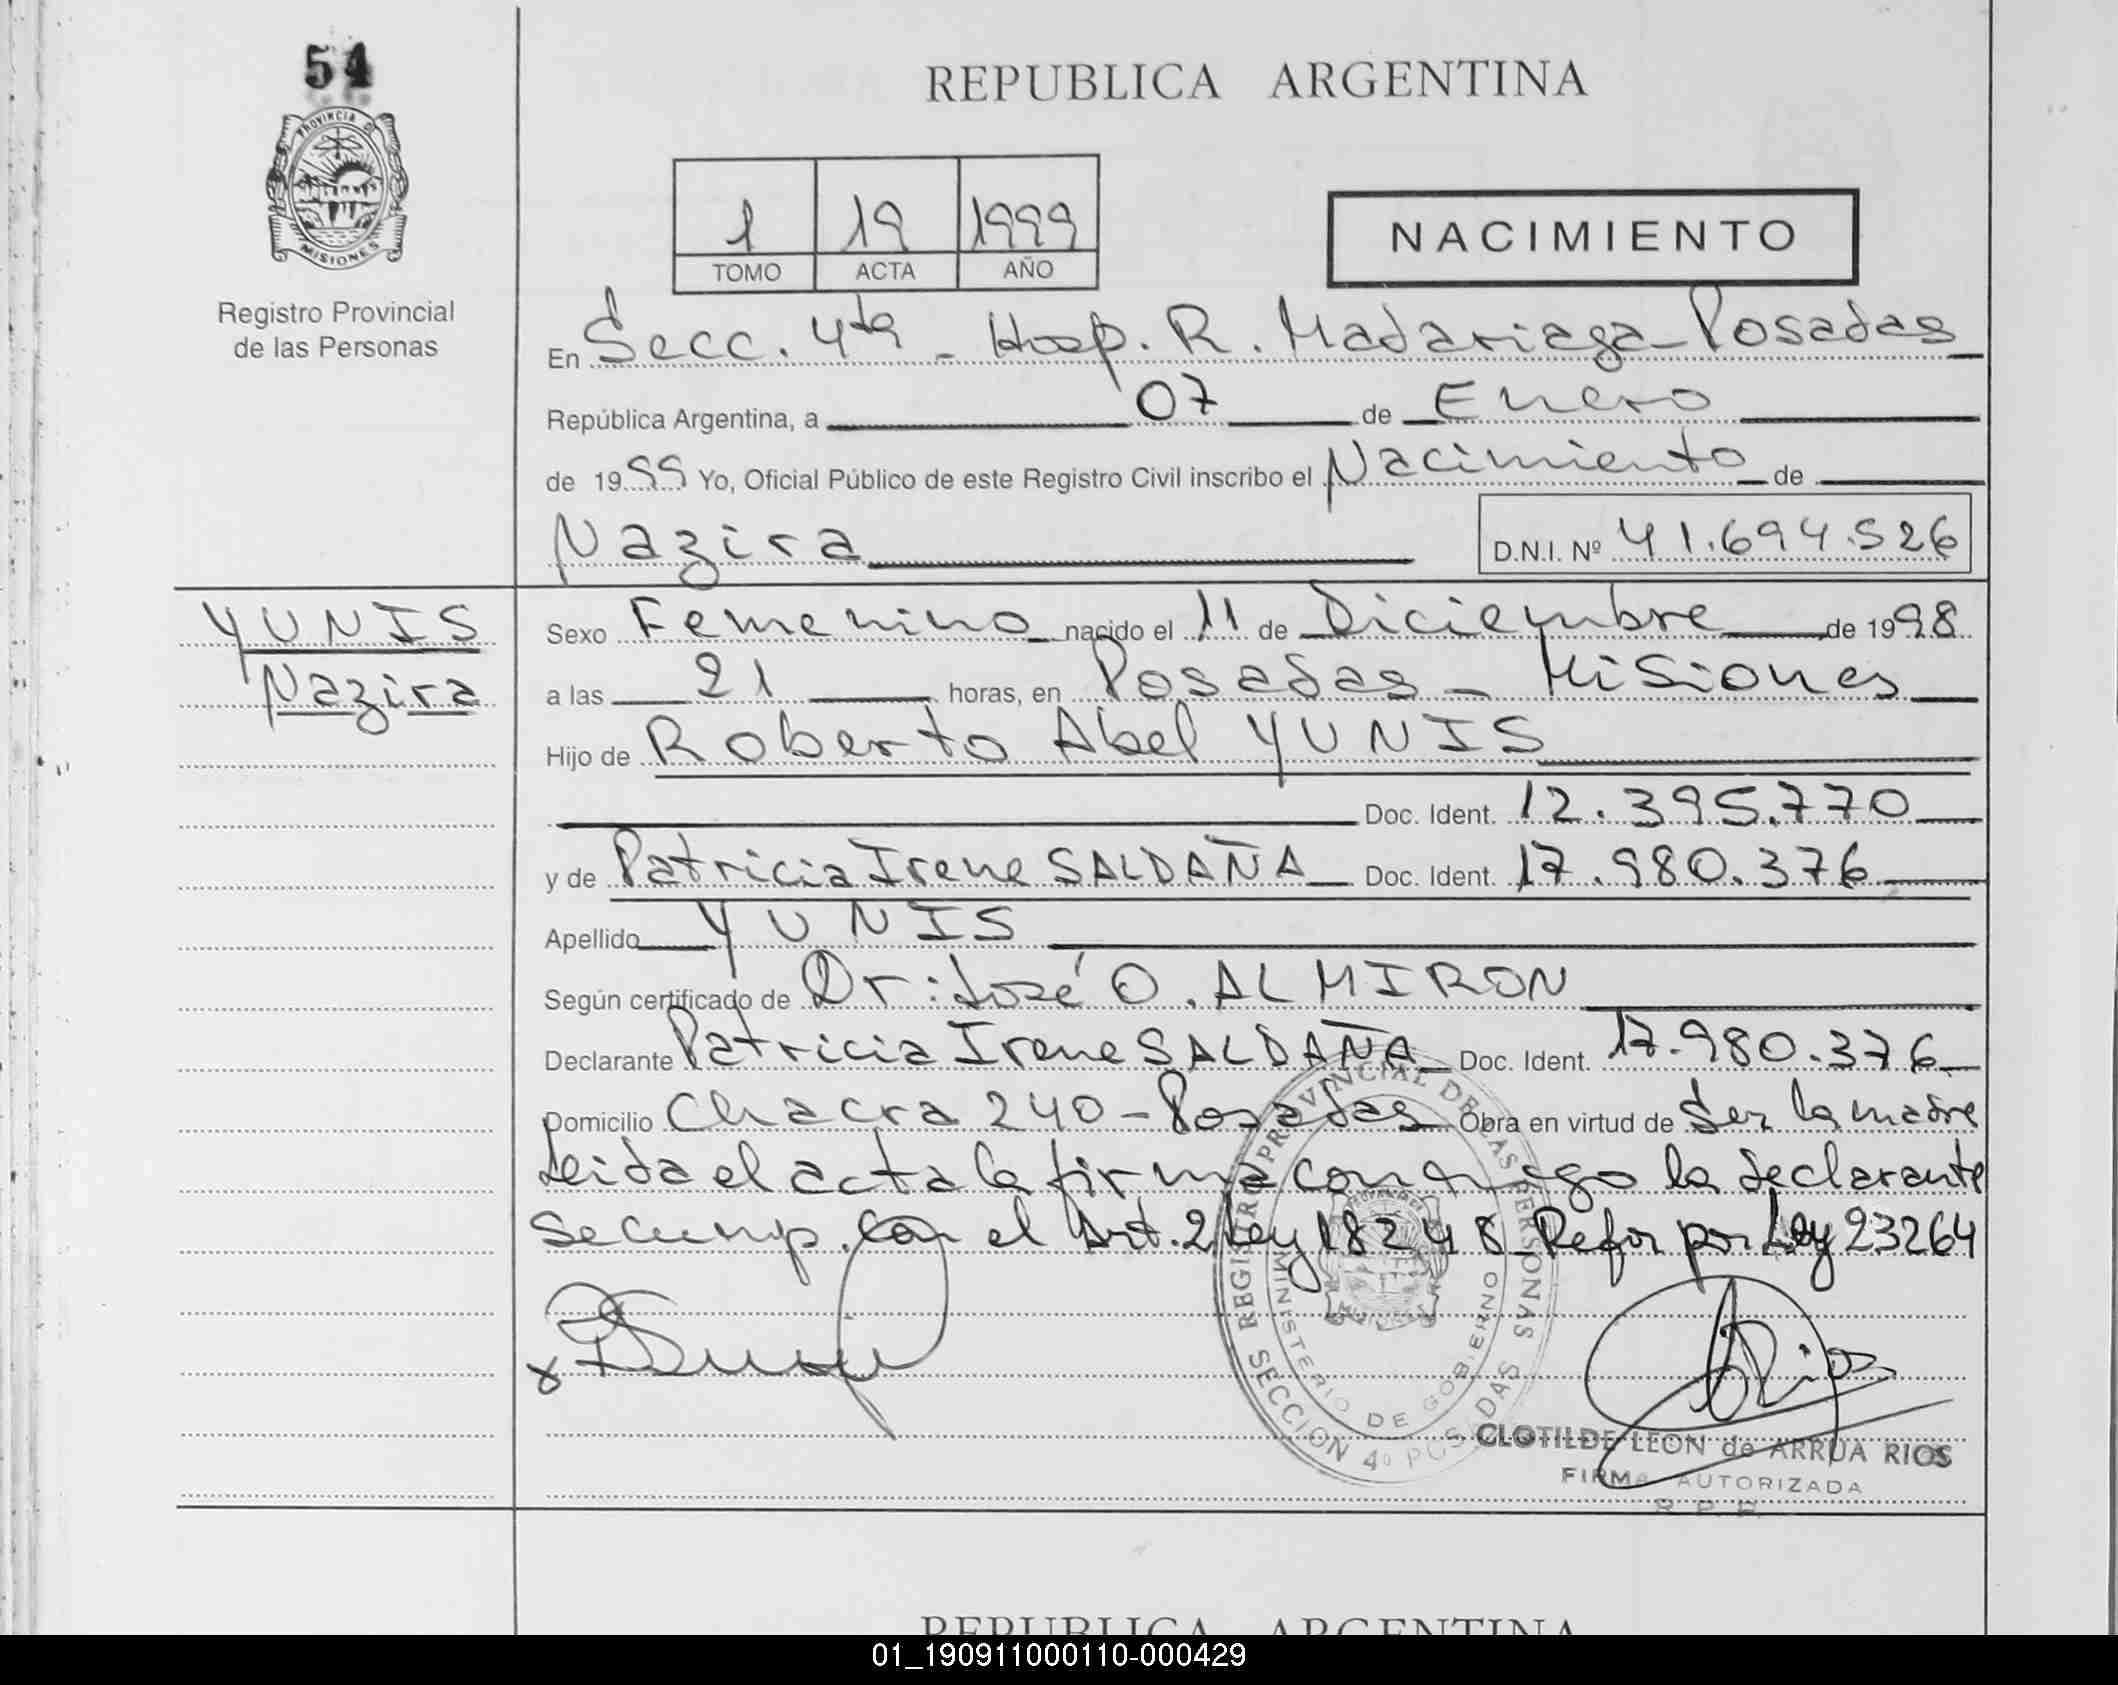 54
PROVINCIA D
MISIONES
Registro Provincial
de las Personas
REPUBLICA ARGENTINA
1 19 1999
TOMO ACTA AÑO
NACIMIENTO
En Secc. 4ta - Hosp. R. Madariaga - Posadas
República Argentina, a 07 de Enero
de 1999 Yo, Oficial Público de este Registro Civil inscribo el Nacimiento de
Nazira D.N.I. Nº 41.694.526
YUNIS
Nazira
Sexo Femenino nacido el 11 de Diciembre de 1998
a las 21 horas, en Posadas - Misiones
Hijo de Roberto Abel YUNIS
Doc. Ident. 12.395.770
y de Patricia Irene SALDAÑA Doc. Ident. 17.980.376
Apellido YUNIS
Según certificado de Dr: José O. ALMIRON
Declarante Patricia Irene SALDAÑA Doc. Ident. 17.980.376
Domicilio Chacra 240 - Posadas Obra en virtud de Ser la madre
Leida el acta la firma conmigo la declarante
Se cump. con el Art. 2 Ley 18248 - Refor por Ley 23264
REGISTRO PROVINCIAL DE LAS PERSONAS
MINISTERIO DE GOBIERNO
SECCION 4º POSADAS
CLOTILDE LEON de ARRUA RIOS
FIRMA AUTORIZADA
R. P. P.
REPUBLICA ARGENTINA
01_190911000110-000429